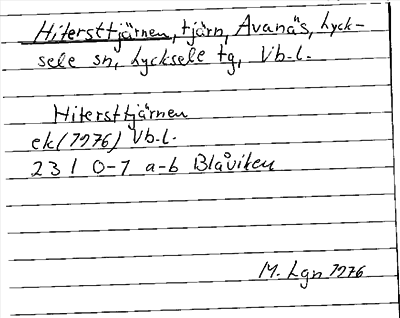 Hitersttjärnen, tjärn, Avanäs, Lyck-
sele sn, Lycksele tg, Vb-l.
Hitersttjärnen
ek (1976) Vb-l.
23 I 0-1 a-b Blåviken
M. Lgn 1976